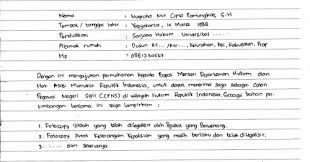 Nama : Nugroho Nur Cipto Pamungkas, S.H
Tempat / tanggal lahir : Yogyakarta, 14 Maret 1988
Pendidikan : Sarjana Hukum Universitas ....
Alamat rumah : Dusun RT.../RW..., Kelurahan, Kec, Kabupaten, Prop
Hp : 
Dengan ini mengajukan permohonan kepada Bapak Menteri Departemen Hukum dan
Hak Asasi Manusia Republik Indonesia, untuk dapat menerima saya sebagai Calon
Pegawai Negeri Sipil (CPNS) di wilayah hukum Republik Indonesia. Sebagai bahan per
timbangan bersama ini saya lampirkan :
1. Fotocopy Ijazah yang telah dilegalisir oleh Pejabat yang Berwenang.
2. Fotocopy Surat Keterangan Kepolisian yang masih berlaku dan telah dilegalisir.
3. .... dan seterusnya.